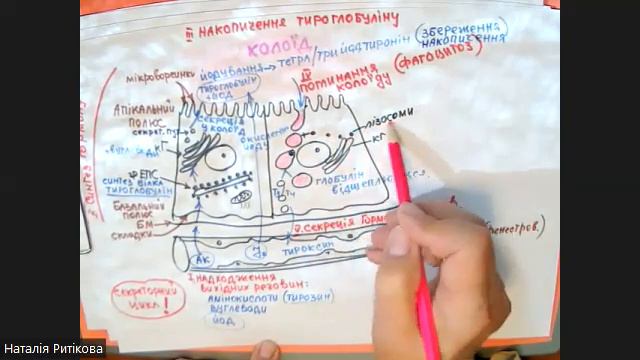 III НАКОПИЧЕННЯ ТИРОГЛОБУЛІНУ
КОЛОЇД
(ЗБЕРЕЖЕННЯ
НАКОПИЧЕННЯ)
ЙОДУВАННЯ → ТЕТРА/ТРИЙОДТИРОНІН
ТИРОГЛОБУЛІН
+ЙОД
IV
ПОГЛИНАННЯ
КОЛОЇДУ
(ФАГОЦИТОЗ)
МІКРОВОРСИНКИ
АПІКАЛЬНИЙ
ПОЛЮС
СЕКРЕТ.
СЕКРЕЦІЯ
У КОЛОЇД
ЛІЗОСОМИ
КГ
КГ
ЕПС
СИНТЕЗ БІЛКА
ТИРОГЛОБУЛІН
ГЛОБУЛІН
ВІДЩЕПЛЮЄТЬСЯ
T3
T4
БАЗАЛЬНИЙ
ПОЛЮС
БМ
СКЛАДКИ
СЕКРЕЦІЯ
ТИРОКСИН
АК
СЕКРЕТОРНИЙ
ЦИКЛ!
I НАДХОДЖЕННЯ
ВИХІДНИХ РЕЧОВИН:
АМІНОКИСЛОТИ (ТИРОЗИН)
ВУГЛЕВОДИ
ЙОД
Наталія Ритікова